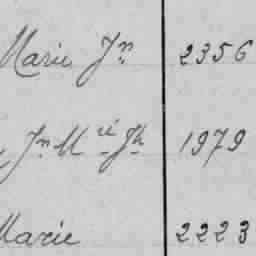 Marie Jn 2356
Jn Mie Jh 1979
Marie 2223